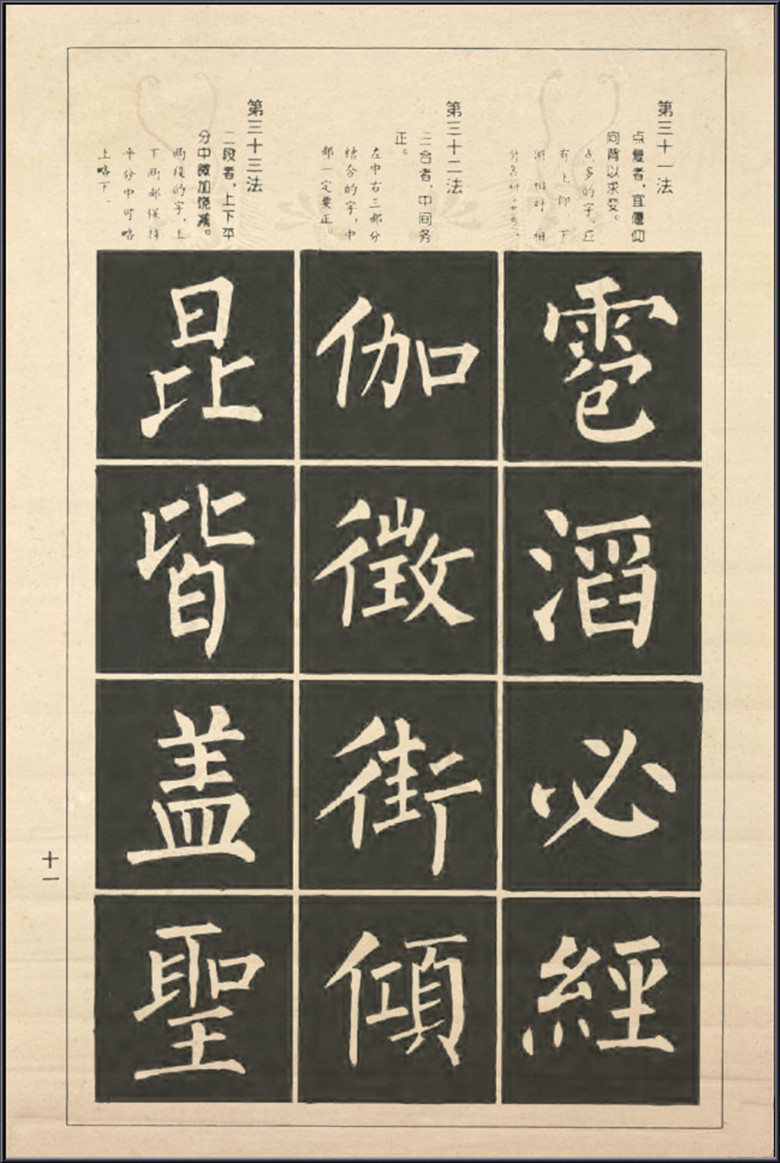 第三十一法
点复者，宜偃仰
向背以求变。
点多的字，应
有上仰下
俯相对相
雹
滔
必
經
第三十二法
三合者，中间务
正。
左中右三部分
结合的字，中
部一定要正
伽
徵
街
傾
第三十三法
二段者，上下平
分中微加饶减。
两段的字，上
下两部保持
平分中可略
上略下。
昆
皆
盖
聖
十一